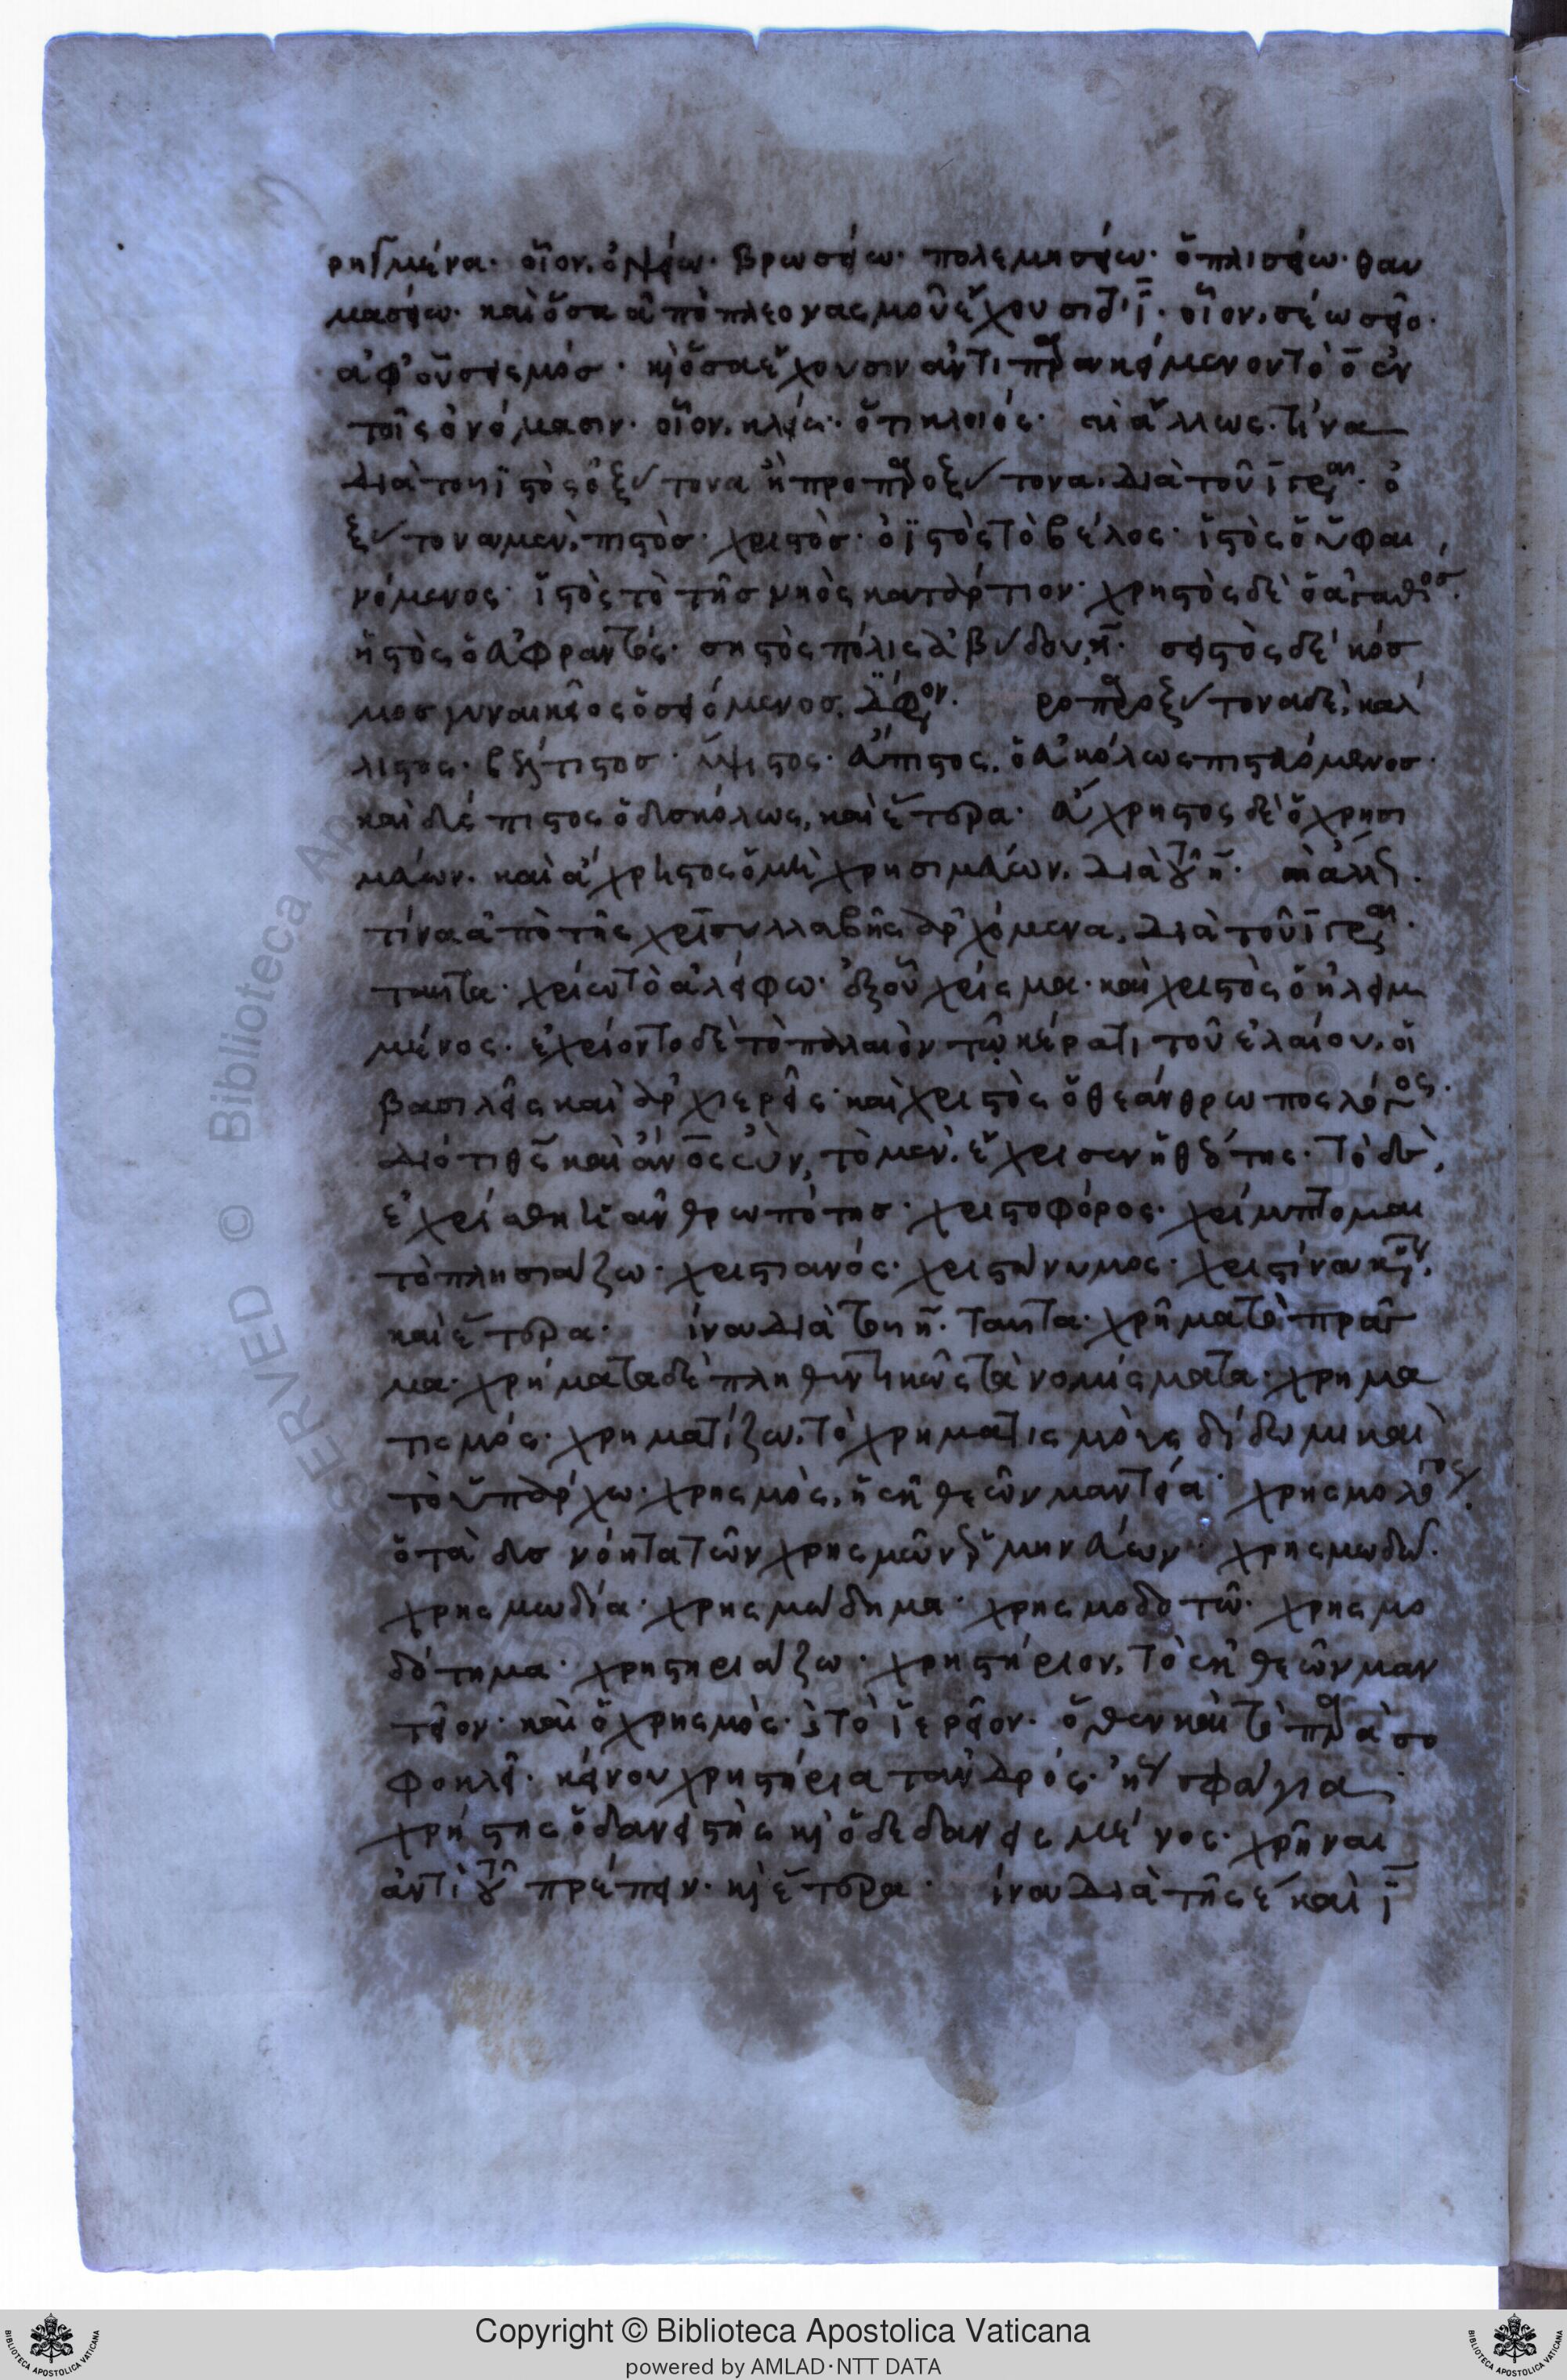 ρημένα· οἷον, ὀψείω· βρωσείω· πολεμησείω· ὁπλισείω· θαυ
μασείω· καὶ ὅσα ἀπὸ πλεονασμοῦ ἔχουσι τὸ ῑ· οἷον, σέω σείω·
ἀφ' οὗ σεισμός· καὶ ὅσα ἔχουσιν ἀντιπαρακείμενον τὸ ο ἐν
τοῖς ὀνόμασιν· οἷον, κλείω· ὅτι κλοιός· ἄλλως· τίνα
διὰ του ιστος ὀξύτονα ἢ προπαροξύτονα, διὰ τοῦ ῑ γράφεται· ὀ
ξύτονα μὲν, πιστὸσ· χριστὸσ· ὀϊστὸς τὸ βέλος· ἱστὸς ὁ ὑφαι
νόμενος· ἱστὸς τὸ τῆσ νηὸς κατάρτιον· χρηστὸς δὲ ὁ ἀγαθὸσ·
σηστὸς πόλις ἀβύδου, η· σειστὸς δὲ κόσ
μοσ γυναικεῖος ὁ σειόμενοσ, ροπαροξύτονα δὲ, κάλ
λιστος· βέλτιστοσ· ὕψιστος· ἄπιστος, ὁ δυσκόλως πιστευόμενοσ·
καὶ δύσπιστος ὁ δυσκόλως, καὶ ἕτερα· εὔχρηστος δὲ ὁ χρησι
μεύων· καὶ ἄχρηστος ὁ μὴ χρησιμεύων, διὰ τοῦ η·
τίνα ἀπὸ τῆς χρι συλλαβῆς ἀρχόμενα, διὰ τοῦ ῑ γράφεται·
ταῦτα· χρίω τὸ ἀλείφω· ἐξ οὗ χρίσμα· καὶ χριστὸς ὁ ἠλειμ
μένος· ἐχρίοντο δὲ τὸ παλαιὸν τῷ κέρατι τοῦ ἐλαίου, οἱ
βασιλεῖς καὶ ἀρχιερεῖς· καὶ χριστὸς ὁ θεάνθρωπος λόγος·
διότι θς καὶ ἄνος ὢν, τὸ μὲν, ἔχρισεν ἡ θεότης· τὸ δὲ,
ἐχρίσθη ἡ ἀνθρωπότησ· χριστοφόρος· χρίμπτομαι
τὸ πλησιάζω· χριστιανός· χριστώνυμος· χριστίνα
καὶ ἕτερα· ίνα διὰ τοῦ η· ταῦτα· χρῆμα τὸ πρᾶγ
μα· χρήματα δὲ πληθυντικῶς τὰ νομίσματα· χρημα
τισμός· χρηματίζω, τὸ χρηματισμοὺς δίδωμι καὶ
τὸ ὑπάρχω· χρησμὸς, ἡ ἐκ θεῶν μαντεία· χρησμολόγος,
ὁ τὰ δυσνόητα τῶν χρησμῶν ἑρμηνεύων· χρησμωδῶ·
χρησμωδία· χρησμώδημα· χρησμοδοτῶ· χρησμο
δότημα· χρηστηριάζω· χρηστήριον, τὸ ἐκ θεῶν μαν
τεῖον· καὶ ὁ χρησμὸς· καὶ τὸ ἱερεῖον· ὅθεν καὶ τὸ παρὰ σο
φοκλεῖ· κείνου χρηστήρια τἀνδρός· ἤγουν σφάγια
χρήστης ὁ δανειστὴς καὶ ὁ δεδανεισμένος· χρῆναι
ἀντὶ τοῦ πρέπειν· καὶ ἕτερα· ίνα διὰ τῆς ε καὶ ῑ